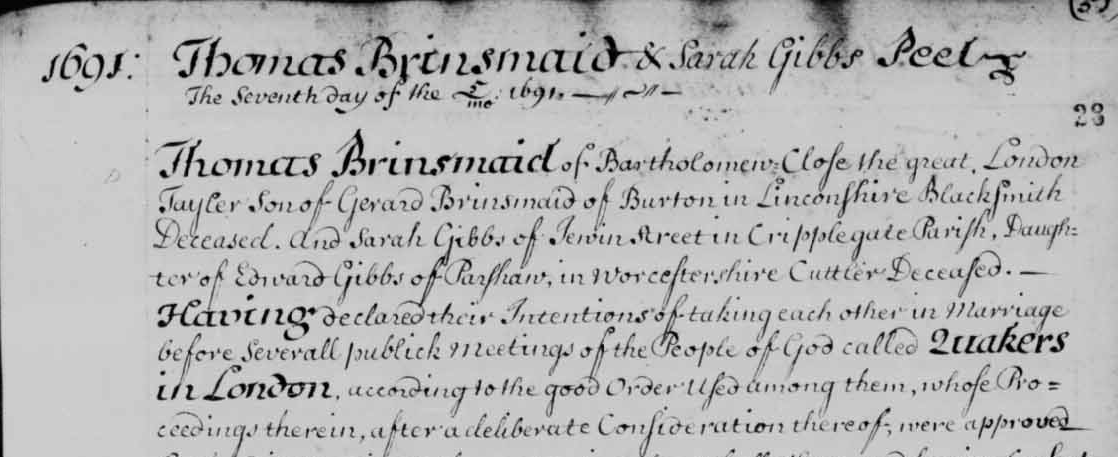 1691: Thomas Brinsmaid & Sarah Gibbs Peel
The Seventh day of the 5/mo: 1691.
23
Thomas Brinsmaid of Bartholomew=Close the great, London
Tayler Son of Gerard Brinsmaid of Burton in Linconshire Blacksmith
Deceased. And Sarah Gibbs of Jewin Street in Cripplegate Parish, Daugh=
ter of Edward Gibbs of Parshaw, in Worcestershire Cuttler Deceased. —
Having declared their Intentions of taking each other in Marriage
before Severall publick Meetings of the People of God called Quakers
in London, according to the good Order Used among them, whose Pro=
ceedings therein, after a deliberate Consideration thereof, were approved